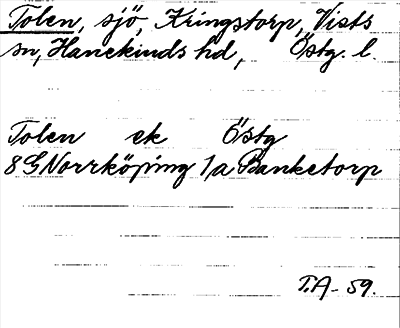 Tolen, sjö, Kringstorp, Vists
sn, Hanekinds hd, Östg. l.
Tolen ek Östg
8G Norrköping 1/a Banketorp
T.A - 59.